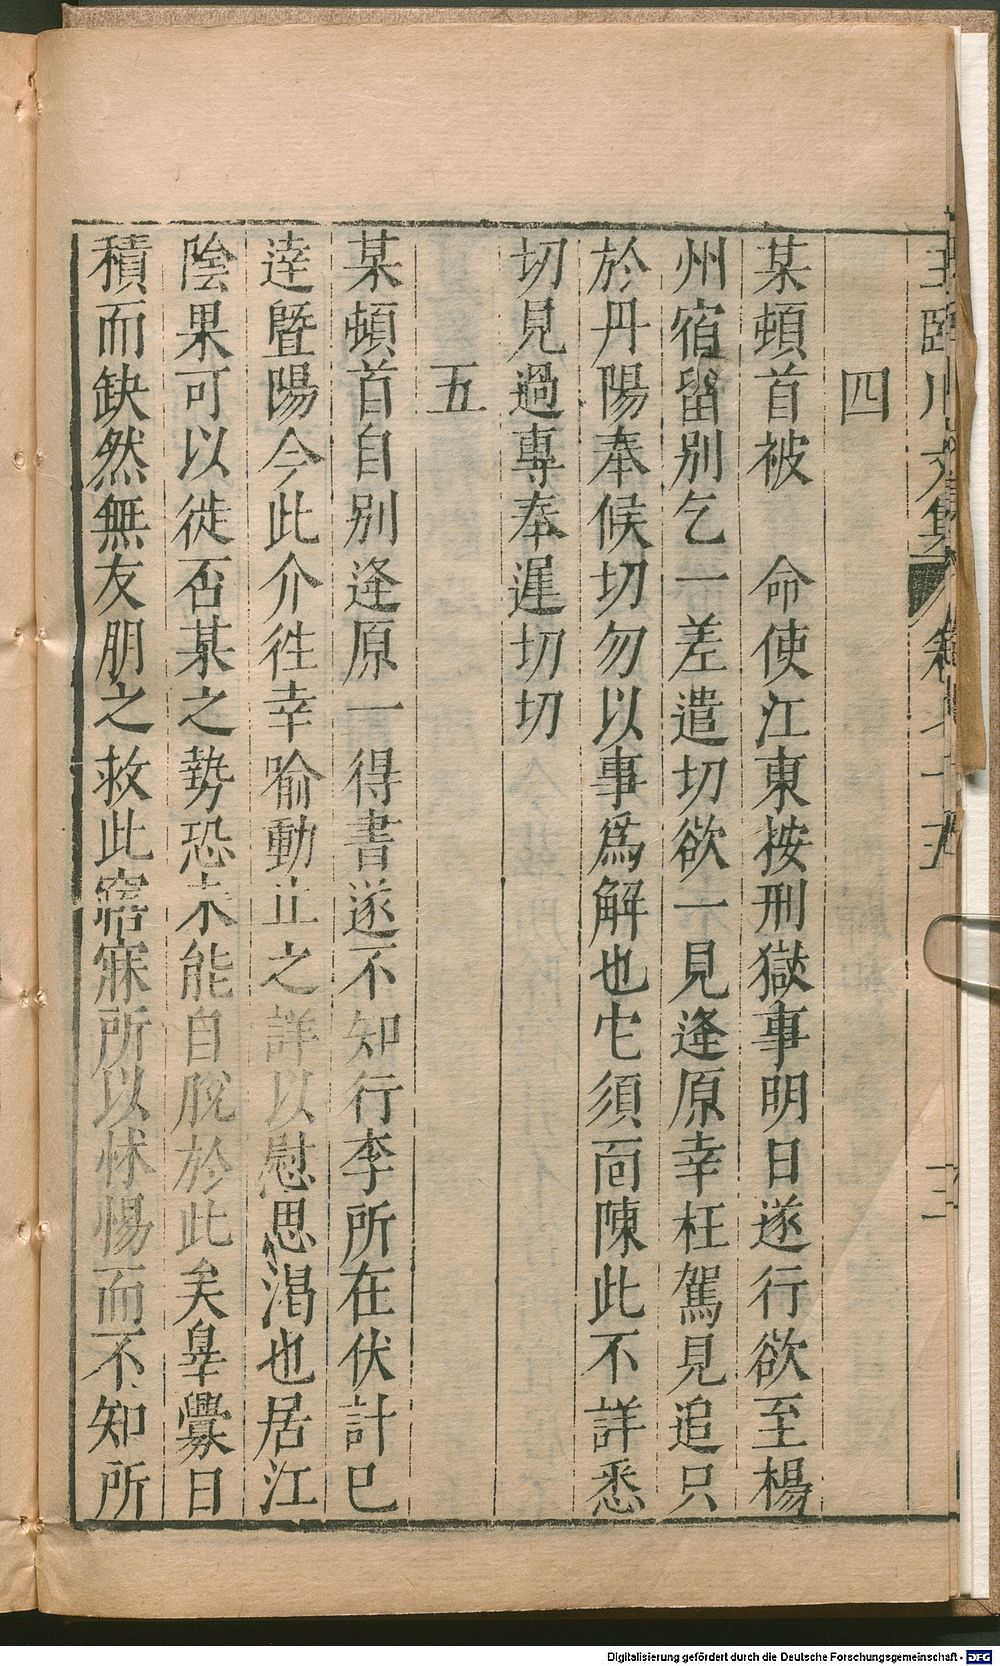 王臨川文集 卷七十五 三
四
某頓首被 命使江東按刑獄事明日遂行欲至楊
州宿留別乞一差遣切欲一見逢原幸枉駕見追只
於丹陽奉候切勿以事爲解也它須面陳此不詳悉
切見過專奉遲切切
五
某頓首自別逢原一得書遂不知行李所在伏計已
達暨陽今此介徃幸喻動止之詳以慰思渴也居江
陰果可以徙否某之勢恐未能自脫於此矣辠釁日
積而缺然無友朋之救此寤寐所以怵惕而不知所
Digitalisierung gefördert durch die Deutsche Forschungsgemeinschaft - DFG